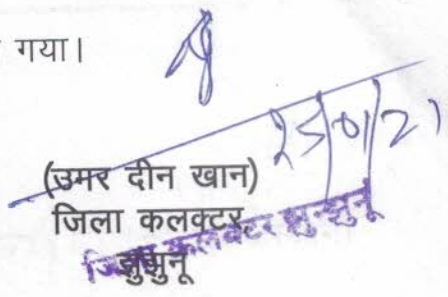 गया।
25/01/21
(उमर दीन खान)
जिला कलक्टर,
झुंझुनू
जिला कलक्टर झुन्झुनू